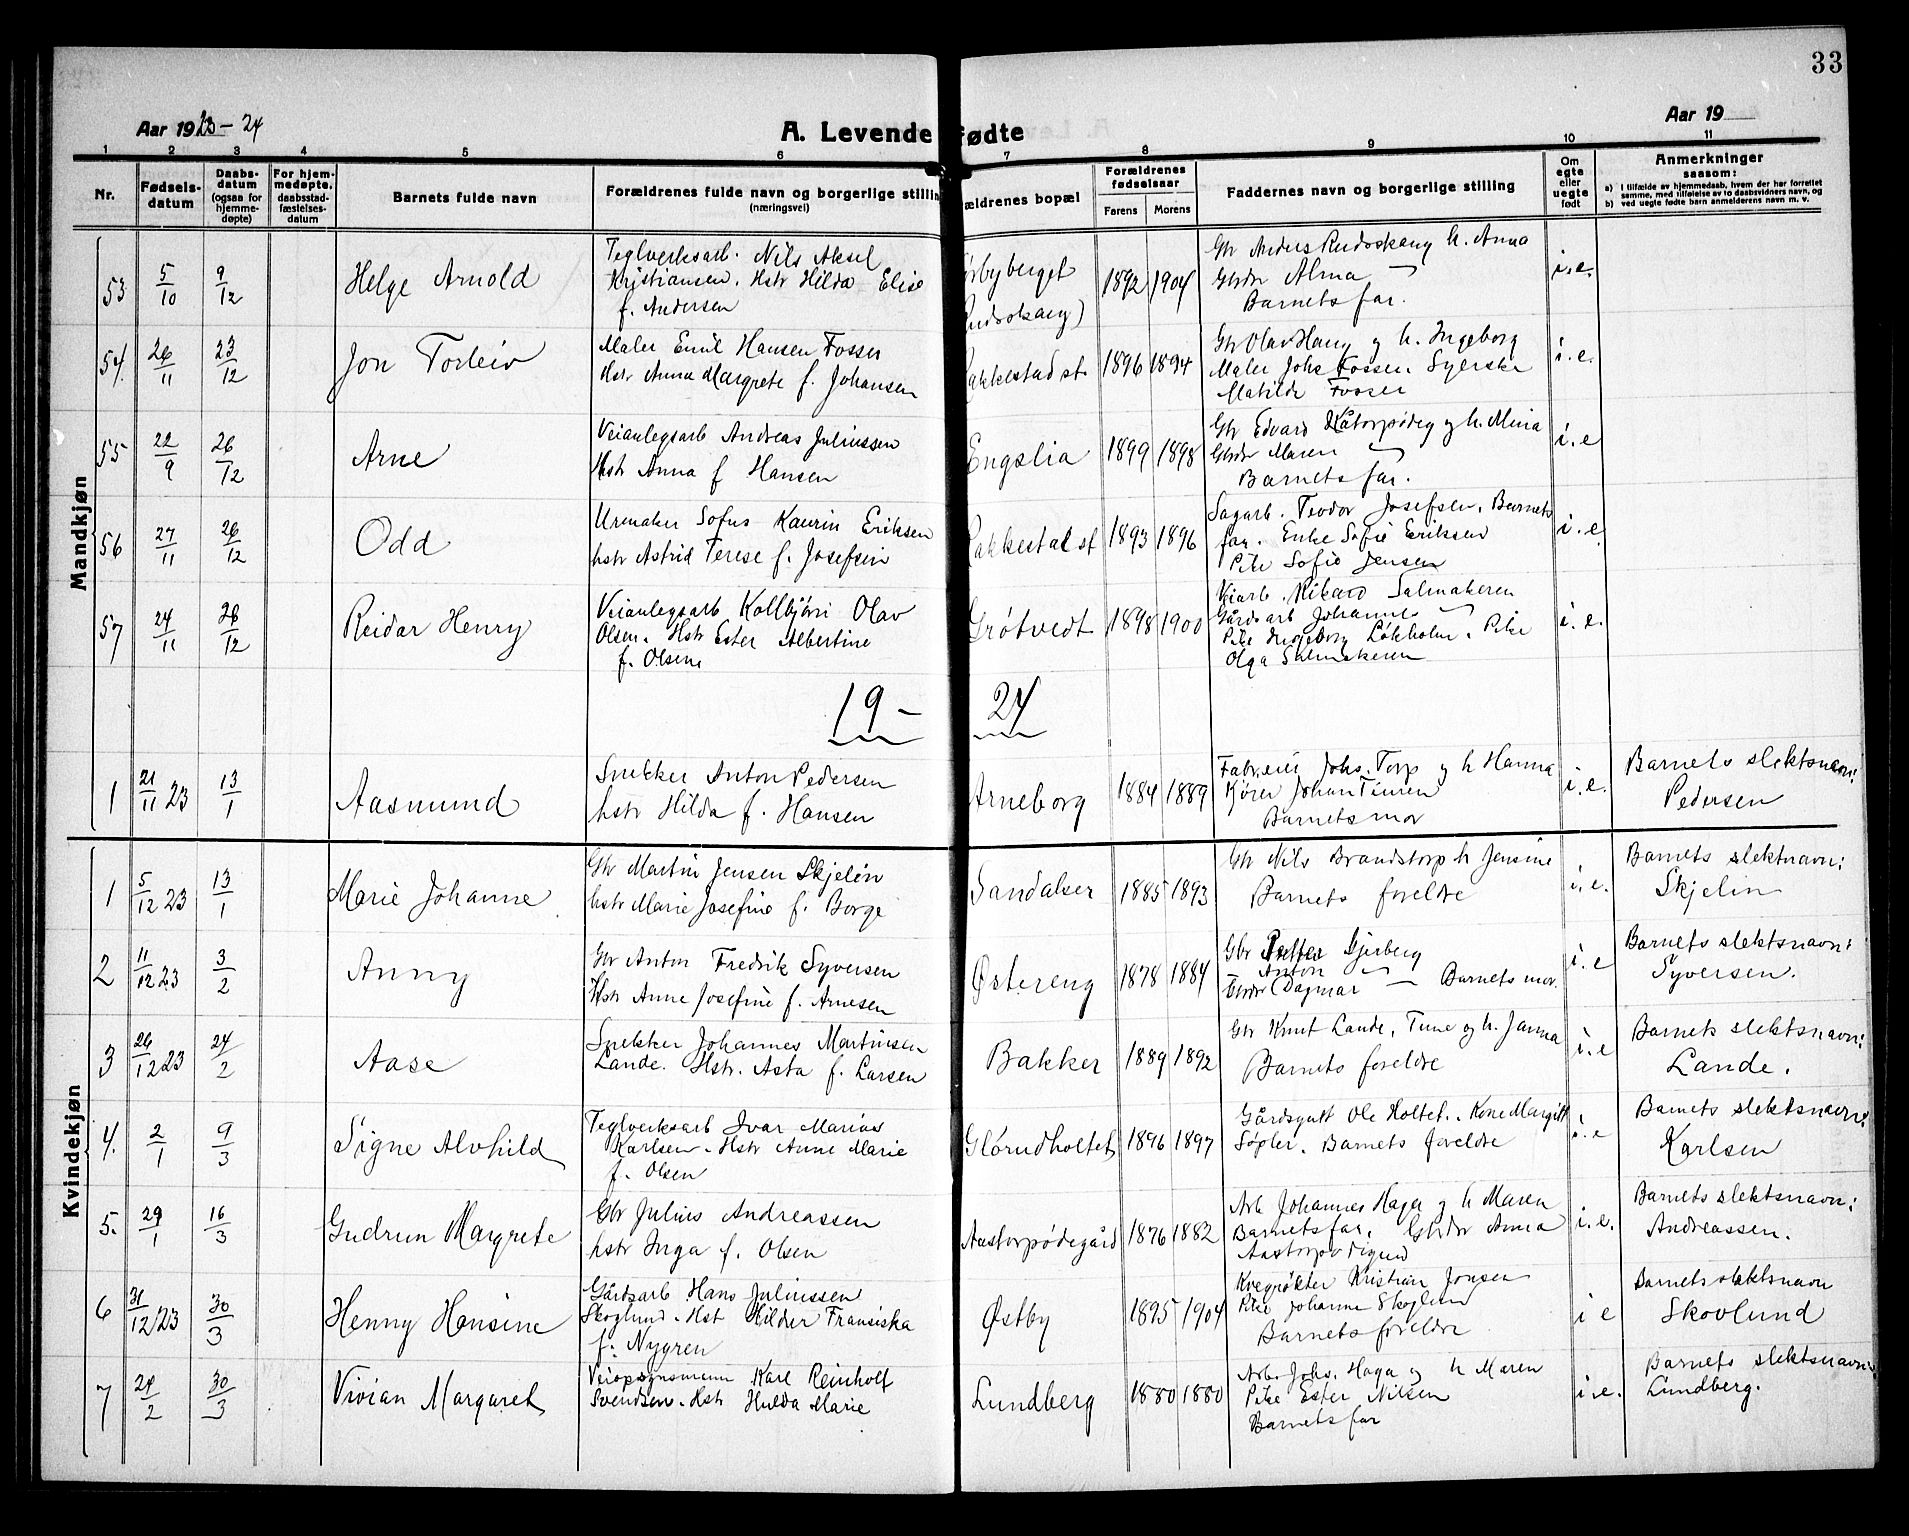 33
Aar 1923-24
A. Levende fødte
Aar 19
1 2 3 4 5 6 7 8 9 10 11
Nr.
Fødselsdatum
Daabsdatum (ogsaa for hjemmedøpte)
For hjemmedøpte. daabsstadfæstelsesdatum
Barnets fulde navn
Forældrenes fulde navn og borgerlige stilling
(næringsvei)
ældrenes bopæl
Forældrenes fødselsaar
Farens Morens
Faddernes navn og borgerlige stilling
Om egte eller uegte født
Anmerkninger
saasom:
a) I tilfælde av hjemmedaab, hvem der har forrettet samme, med tilføielse av to daabsvidners navn, og
b) ved uegte fødte barn anmelderens navn m. v.
Mandkjøn
53 5/10 9/12 Helge Arnold
Teglverksarb. Nils Aksel
Kristiansen. Hstr Hilda Elise
f. Andersen
ørbyberget
Rudskaug)
1892 1904
Gbr Anders Rudskaug h. Anna
Gbrdr Alma —
Barnets far.
i.e.
54. 26/11 23/12 Jon Torleiv
Maler Emil Hansen Fosser
Hstr Anna Margrete f. Johansen
akkestad st.
1896 1894
Gbr Olav Haug og h. Ingeborg
Maler Johs Fossen Syerske
Matilde Fosser
i.e.
55 22/9 26/12 Arne
Veianlegsarb Andreas Juliussen
Hstr Anna f Hansen
Engelia
1899 1898
Gbr Edvard og h. Mina
Gbrdr Maren —
Barnets far.
i.e
56 27/11 26/12 Odd
Urmaker Sofus Kaurin Eriksen
hstr Astrid Terese f. Josefsen
akkestad st
1893 1896
Sagarb. Teodor Josefsen, Barnets
far. Enke Sofie Eriksen
Pike Sofie Jensen
i.e
57 24/11 26/12 Reidar Henry
Veianlegsarb Kollbjørn Olav
Olsen. Hstr Ester Albertine
f. Olsen
Grøtvedt
1898 1900
Veiarb. Rikard Salmakeren
Gårdsarb Johannes —
Pike Ingeborg Løkholm. Pike
Olga Salmakeren
i.e.
19 - 24
1 21/11 23 13/1 Aasmund
Snekker Anton Pedersen
hstr Hilda f. Hansen
Arneborg
1884 1889
Fabreier Johs. Torp og h Hanna
Kører Johan
Barnets mor
i.e.
Barnets slektsnavn:
Pedersen
Kvindekjøn
1 5/12 23 13/1 Marie Johanne
Gbr Martin Jensen Skjelin
hstr Marie Josefine f. Borge
Sandaker
1885 1893
Gbr Nils Brandstorp h Jensine
Barnets foreldre
i.e.
Barnets slektnavn:
Skjelin
2 11/12 23 3/2 Anny
Gbr Anton Fredrik Syversen
Hstr Anne Josefine f. Arnesen
Østereng
1878 1884
Gbr Petter Gjerberg
Anton —
Gbrdr Dagmar — Barnets mor.
i.e
Barnets slektsnavn:
Syversen.
3 26/12 23 24/2 Aase
Snekker Johannes Martinsen
Lande. Hstr. Asta f. Larsen
Bakker
1889 1892
Gbr Knut Lande, Tune og h. Janna
Barnets foreldre
i.e
Barnets slektsnavn:
Lande.
4. 2/1 9/3 Signe Alvhild
Teglverksarb Ivar Marius
Karlsen. Hstr Anne Marie
f. Olsen
Glørudholtet
1896 1897
Gårdsgutt Ole Holtet. Kone Margitt
Søpler. Barnets foreldre
i.e
Barnets slektsnavn:
Karlsen
5. 29/1 16/3 Gudrun Margrete
Gbr Julius Andreassen
hstr Inga f. Olsen
Aastorpødegård
1876 1882
Arb Johannes Haga og h Maren
Barnets far. Gbrdr Anna
i.e.
Barnets slektsnavn:
Andreassen.
6 31/12 23 30/3 Henny Hansine
Gårdsarb Hans Juliussen
Skoglund. Hst Hilder Fransiska
f. Nygren
Østby
1895 1904
Kvegrøkter Kristian Jonsen
Pike Johanne Skoglund
Barnets foreldre
i e
Barnets slektsnavn
Skovlund
7 24/2 30/3 Vivian Margaret
Veiopsynsmann Karl Reinholt
Svendsen. Hstr Hulda Marie
Lundberg
1880 1880
Arb. Johs. Haga og h Maren
Pike Ester Nilsen
Barnets far
i.e.
Barnets slektsnavn:
Lundberg.